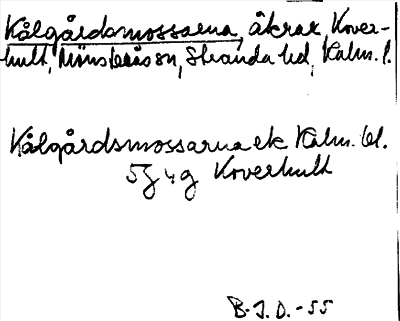 Kålgårdsmossarna, åkrar, Kover-
hult, Mönsterås sn, Stranda hd, Kalm. l.
Kålgårdsmossarna ek Kalm. bl.
5J 4g Koverhult
B.I.D. -55